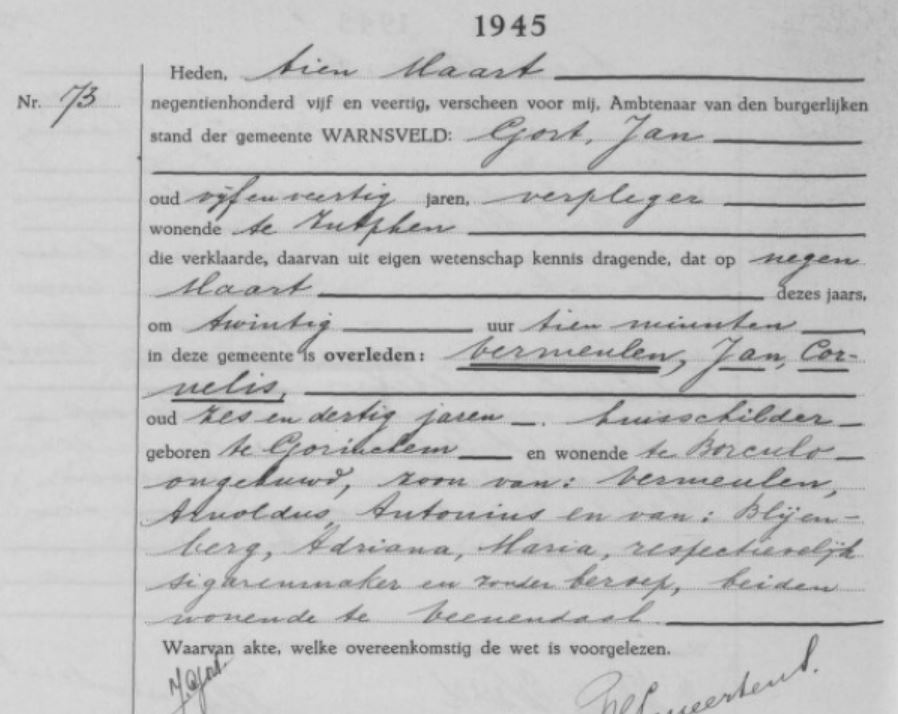 1945
Heden, tien Maart
Nr. 73
negentienhonderd vijf en veertig, verscheen voor mij, Ambtenaar van den burgerlijken
stand der gemeente WARNSVELD: Gort, Jan
oud vijf en veertig jaren, verpleger
wonende te Zutphen
die verklaarde, daarvan uit eigen wetenschap kennis dragende, dat op negen
Maart dezes jaars,
om twintig uur tien minuten
in deze gemeente is overleden: Vermeulen, Jan, Cor-
nelis,
oud zes en dertig jaren —. huisschilder
geboren te Gorinchem en wonende te Borculo
ongehuwd, zoon van: Vermeulen,
Arnoldus, Antonius en van: Blijen-
berg, Adriana, Maria, respectievelijk
sigarenmaker en zonder beroep, beiden
wonende te Veenendaal
Waarvan akte, welke overeenkomstig de wet is voorgelezen.
J. Gort.